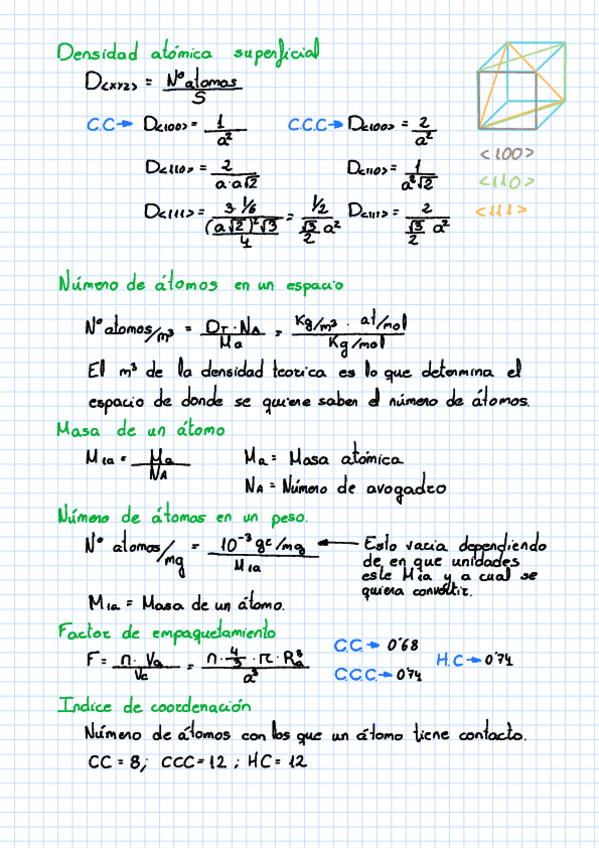 Densidad atómica superficial
D<xyz> = Nº atomos / S
C.C → D<100> = 1 / a² C.C.C → D<100> = 2 / a²
<100>
D<110> = 2 / a·a√2 D<110> = 1 / a²√2
<110>
D<111> = 3·1/6 / ((a√2)²√3 / 4) = 1/2 / (√3/2 a²) D<111> = 2 / (√3/2 a²)
<111>
Número de átomos en un espacio
Nº atomos/m³ = DT · NA / Ma = Kg/m³ · at/mol / Kg/mol
El m³ de la densidad teorica es lo que determina el
espacio de donde se quiere saber el número de átomos.
Masa de un átomo
M1a = Ma / NA Ma = Masa atómica
NA = Número de avogadro
Número de átomos en un peso.
Nº atomos/mg = 10⁻³ gr/mg / M1a ← Esto varia dependiendo
de en que unidades
este M1a y a cual se
quiera convertir.
M1a = Masa de un átomo.
Factor de empaquetamiento
F = n · Va / Vc = n · 4/3 · π · Ra³ / a³ C.C → 0'68 H.C → 0'74
C.C.C → 0'74
Indice de coordenación
Número de átomos con los que un átomo tiene contacto.
CC = 8; CCC = 12 ; HC = 12